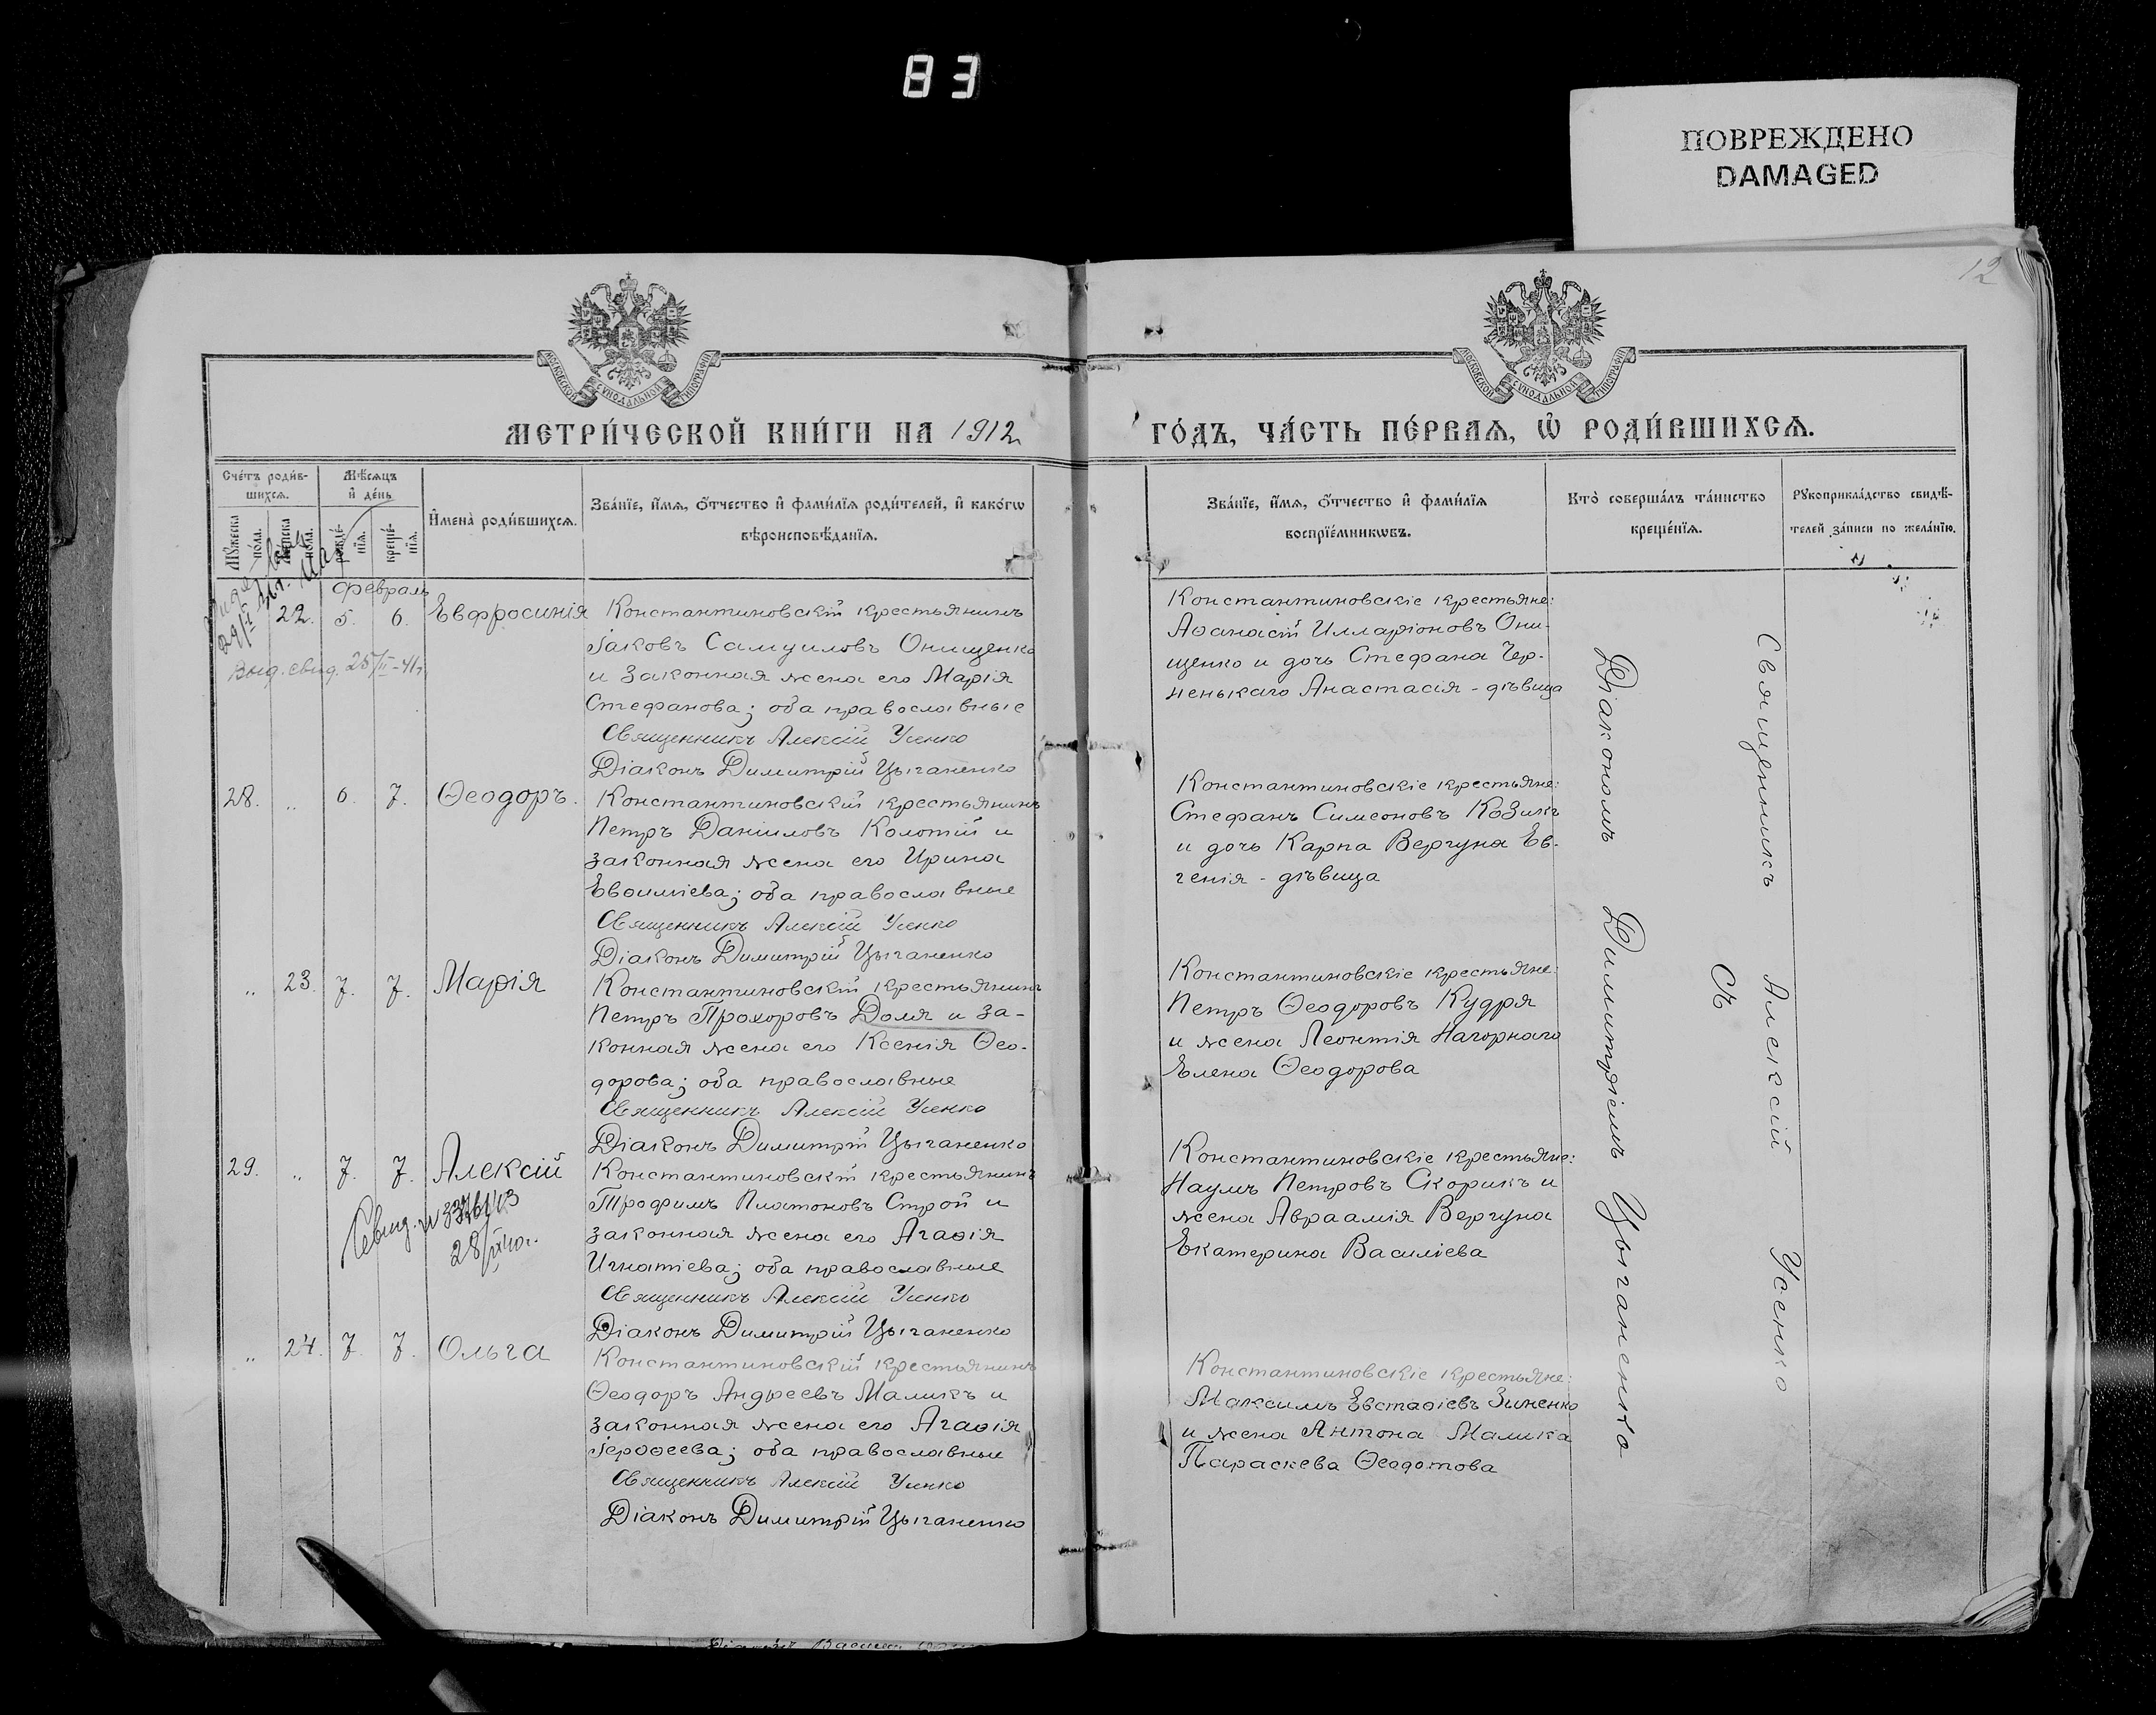 83
ПОВРЕЖДЕНО
DAMAGED
12
МОСКОВСКОЙ СУНОДАЛЬНОЙ ТИПОГРАФІИ
МОСКОВСКОЙ СУНОДАЛЬНОЙ ТИПОГРАФІИ
МЕТРИ́ЧЕСКОЙ КНИ́ГИ НА 1912
ГО́ДЪ, ЧА́СТЬ ПЕ́РВАѦ, Ѡ҆ РОДИ́ВШИХСѦ.
Сче́тъ роди́в-
шихсѧ.
Мꙋ́жеска
по́ла.
Же́нска
по́ла.
Мѣ́сѧцъ
и҆ де́нь
рожде́-
нїѧ.
креще́-
нїѧ.
И҆мена̀ роди́вшихсѧ.
Зва́нїе, и҆́мѧ, ѻ҆́тчество и҆ фами́лїѧ роди́телей, и҆ како́гѡ
вѣроисповѣ́данїѧ.
Зва́нїе, и҆́мѧ, ѻ҆́тчество и҆ фами́лїѧ
воспрїе́мникѡвъ.
Кто̀ соверша́лъ та́инство
креще́нїѧ.
Рꙋкоприкла́дство свидѣ́-
телей за́писи по жела́нїю.
Февраль
22. 5. 6. Евфросинія
Выд. свид. 25/II-41г.
Константиновскій крестьянинъ
Іаковъ Самуиловъ Онищенко
и законная жена его Марія
Стефанова; оба православные
Священникъ Алексій Усенко
Діаконъ Димитрій Цыганенко
Константиновскіе крестьяне:
Аѳанасій Илларіоновъ Они-
щенко и дочь Стефана Чер-
ненькаго Анастасія - дѣвица
28. „ 6. 7. Ѳеодоръ.
Константиновскій крестьянинъ
Петръ Даніиловъ Колотій и
законная жена его Ирина
Евѳиміева; оба православные
Священникъ Алексій Усенко
Діаконъ Димитрій Цыганенко
Константиновскіе крестьяне:
Стефанъ Симеоновъ Козикъ
и дочь Карпа Вергуна Ев-
генія - дѣвица
„ 23. 7. 7. Марія
Константиновскій крестьянинъ
Петръ Прохоровъ Доля и за-
конная жена его Ксенія Ѳео-
дорова; оба православные
Священникъ Алексій Усенко
Діаконъ Димитрій Цыганенко
Константиновскіе крестьяне:
Петръ Ѳеодоровъ Кудря
и жена Леонтія Нагорнаго
Елена Ѳеодорова
29. „ 7. 7. Алексій
Свид. №
28/
Константиновскій крестьянинъ
Трофимъ Платоновъ Строй и
законная жена его Агаѳія
Игнатіева; оба православные
Священникъ Алексій Усенко
Діаконъ Димитрій Цыганенко
Константиновскіе крестьяне:
Наумъ Петровъ Скорикъ и
жена Авраамія Вергуна
Екатерина Василіева
„ 24. 7. 7. Ольга
Константиновскій крестьянинъ
Ѳеодоръ Андреевъ Маликъ и
законная жена его Агаѳія
Іероѳеева; оба православные
Священникъ Алексій Усенко
Діаконъ Димитрій Цыганенко
Константиновскіе крестьяне:
Максимъ Евстаѳіевъ Зиненко
и жена Антона Малика
Параскева Ѳеодотова
Священникъ Алексій Усенко
съ
Діакономъ Димитріемъ Цыганенко